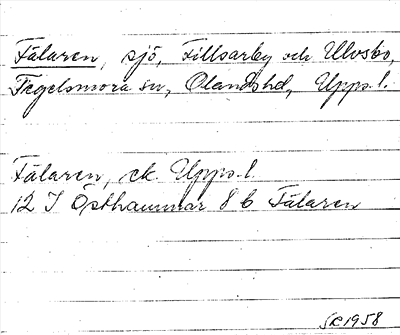 Fälaren, sjö, Fillsarby och Ulvsbo,
Tegelsmora sn, Olandshd, Upps. l.
Fälaren, ek. Upps. l.
12 I Östhammar 8 b Fälaren
SR 1958